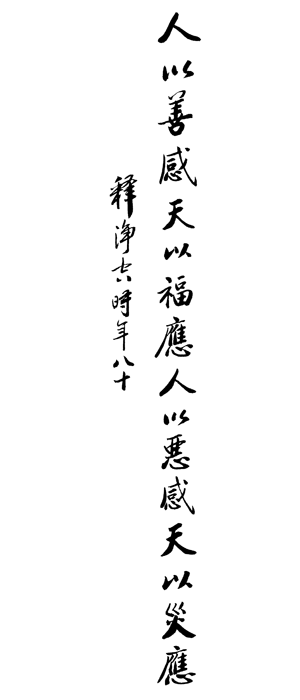 人以善感天以福應人以惡感天以災應
釋淨空時年八十